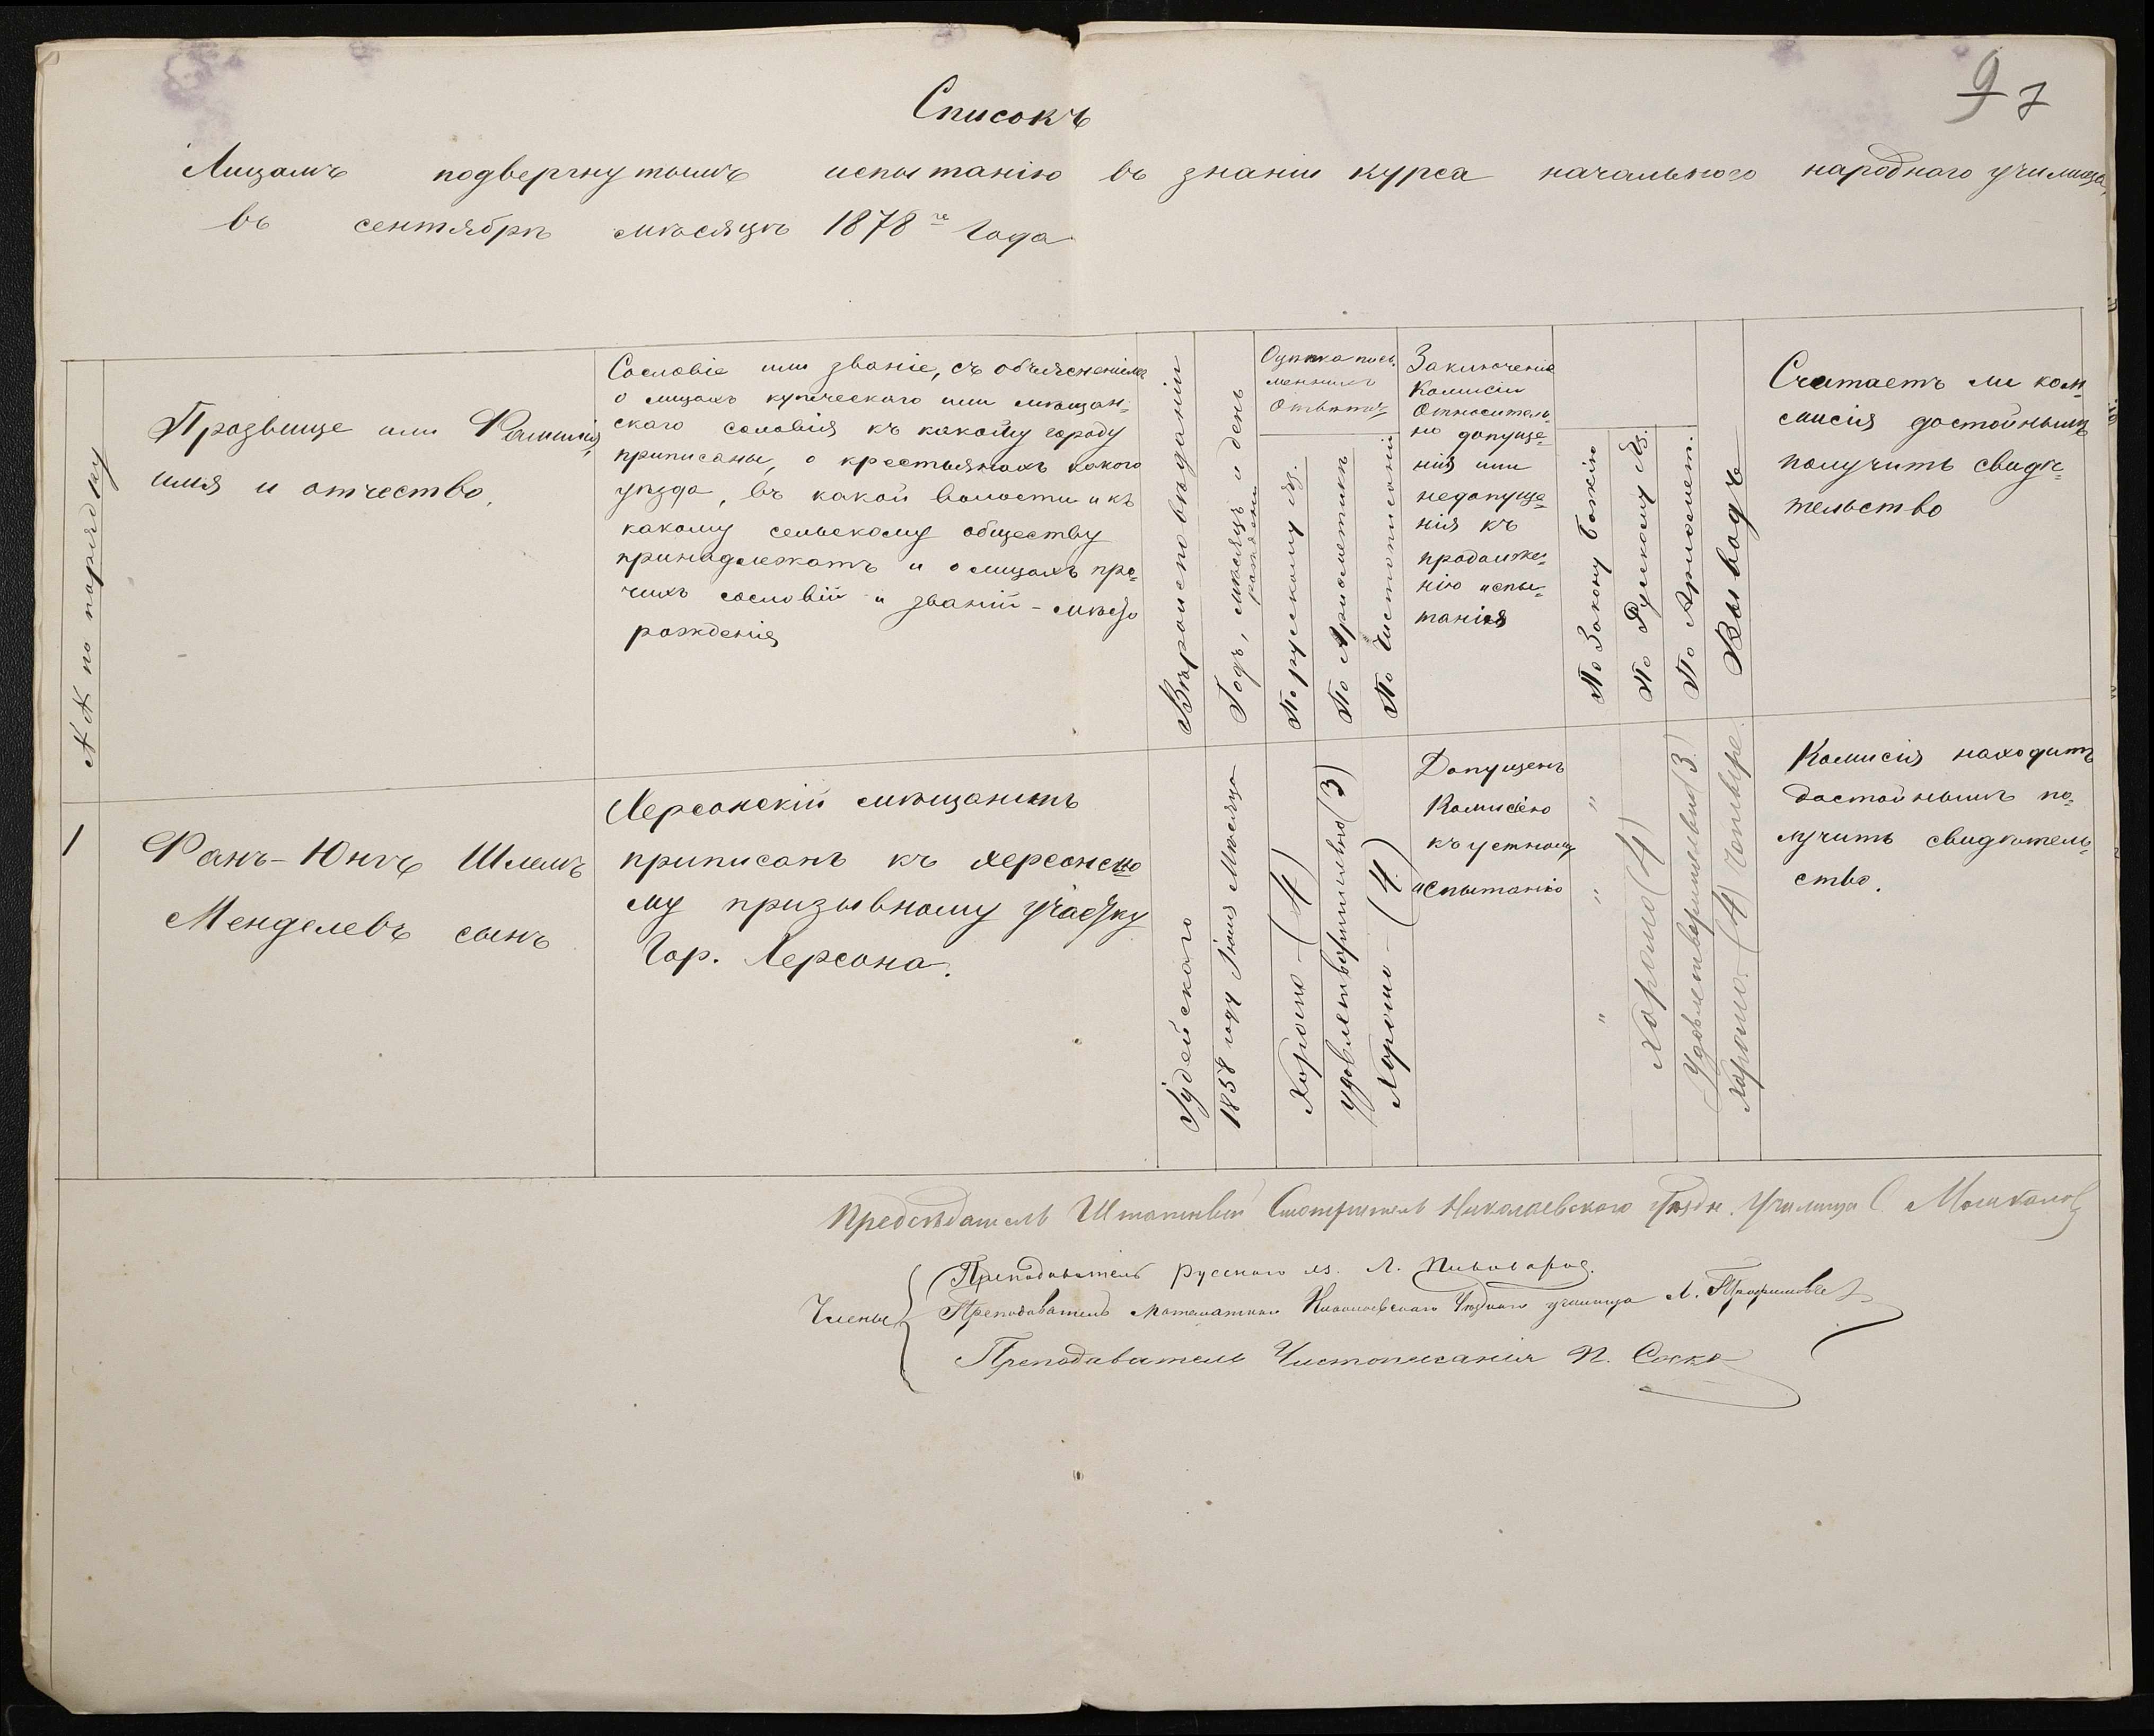 9 7
Списокъ
Лицамъ подвергнутымъ испытанію въ знаніи курса начальнаго народнаго училища,
въ сентябрѣ мѣсяцѣ 1878 го Года
№№ по порядку
Прозвище или Фамилія,
имя и отчество.
Сословіе или званіе, съ объясненіемъ
о лицахъ купеческаго или мѣщан-
скаго сословія къ какому городу
приписаны, о крестьянахъ какого
уѣзда, въ какой волости и къ
какому сельскому обществу
принадлежатъ и о лицахъ про-
чихъ сословій и званій - мѣсто
рожденія
Вѣроисповѣданіи
Годъ, мѣсяцъ и день
рожденія
Оцѣнка пись-
менныхъ
Отвѣтовъ
По русскому яз.
По Ариѳметикѣ
По Чистописанію
Заключеніе
Комисіи
Относитель-
но допуще-
нія или
недопуще-
нія къ
продолже-
нію испы-
танія
По Закону Божію
По Русскому Яз.
По Ариѳмет.
Выводъ
Считаетъ ли ком-
мисія достойнымъ
получить свидѣ-
тельство
1
Фанъ-Юнгъ Шлемъ
Менделевъ сынъ
Херсонскій мѣщанинъ
приписанъ къ херсонско
му призывному участку
Гор. Херсона.
Іудейскаго
1858 году Іюня Мѣсяца
Хорошо - (4)
Удовлетворительно (3)
Хорошо - (4.)
Допущенъ
Комисіею
къ устному
испытанію
" " "
Хорошо (4)
Удовлетворительно (3.)
Хорошо - (4) четыре.
Комисія находитъ
достойнымъ по-
лучить свидѣтель-
ство.
Предсѣдатель Штатный Смотритель Николаевскаго Уѣздн. Училища С.
Члены
Преподаватель русскаго яз. Л. Пивоваров.
Преподаватель математики Николаевскаго Уѣзднаго училища Л.
Преподаватель Чистописанія П.